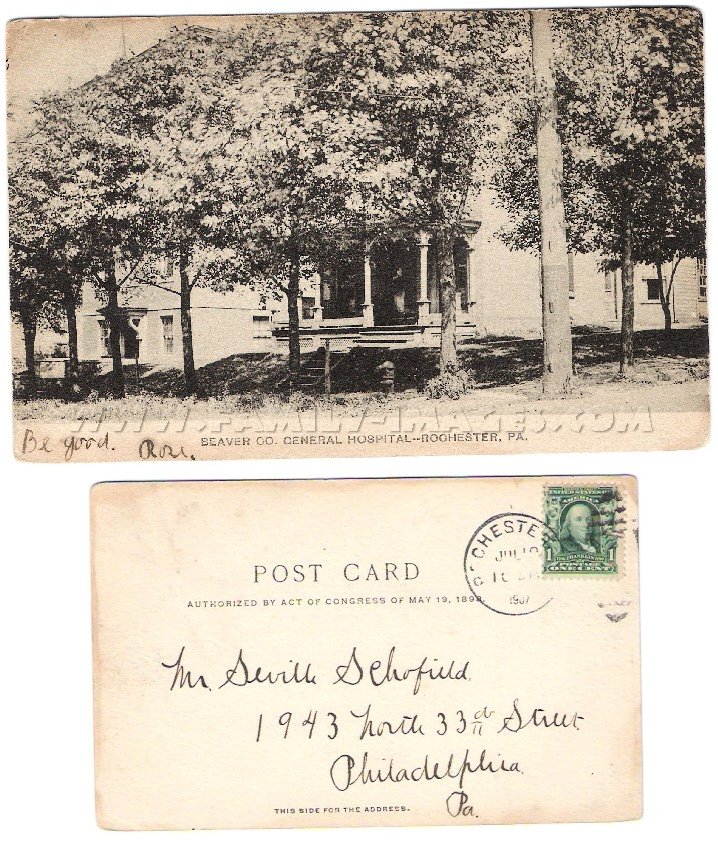 WWW.FAMILY-IMAGES.COM
Be good. Rose.
BEAVER CO. GENERAL HOSPITAL--ROCHESTER, PA.
UNITED STATES OF AMERICA
1 FRANKLIN 1
POSTAGE
ONE CENT
ROCHESTER
JUL
10
1907
POST CARD
AUTHORIZED BY ACT OF CONGRESS OF MAY 19, 1898.
Mr. Seville Schofield
1943 North 33rd Street
Philadelphia
Pa.
THIS SIDE FOR THE ADDRESS.